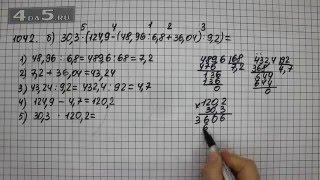 4ads.ru
5 4 1 2 3
1042. б) 30,3·(124,9-(48,96:6,8+36,04):9,2)=
1) 48,96:6,8=489,6:68=7,2
2) 7,2+36,04=43,24
3) 43,24:9,2=432,4:92=4,7
4) 124,9-4,7=120,2
5) 30,3 · 120,2=
489,6 68
476 7,2
136
136
0
432,4 92
368 4,7
644
644
0
×120,2
30,3
3606
6